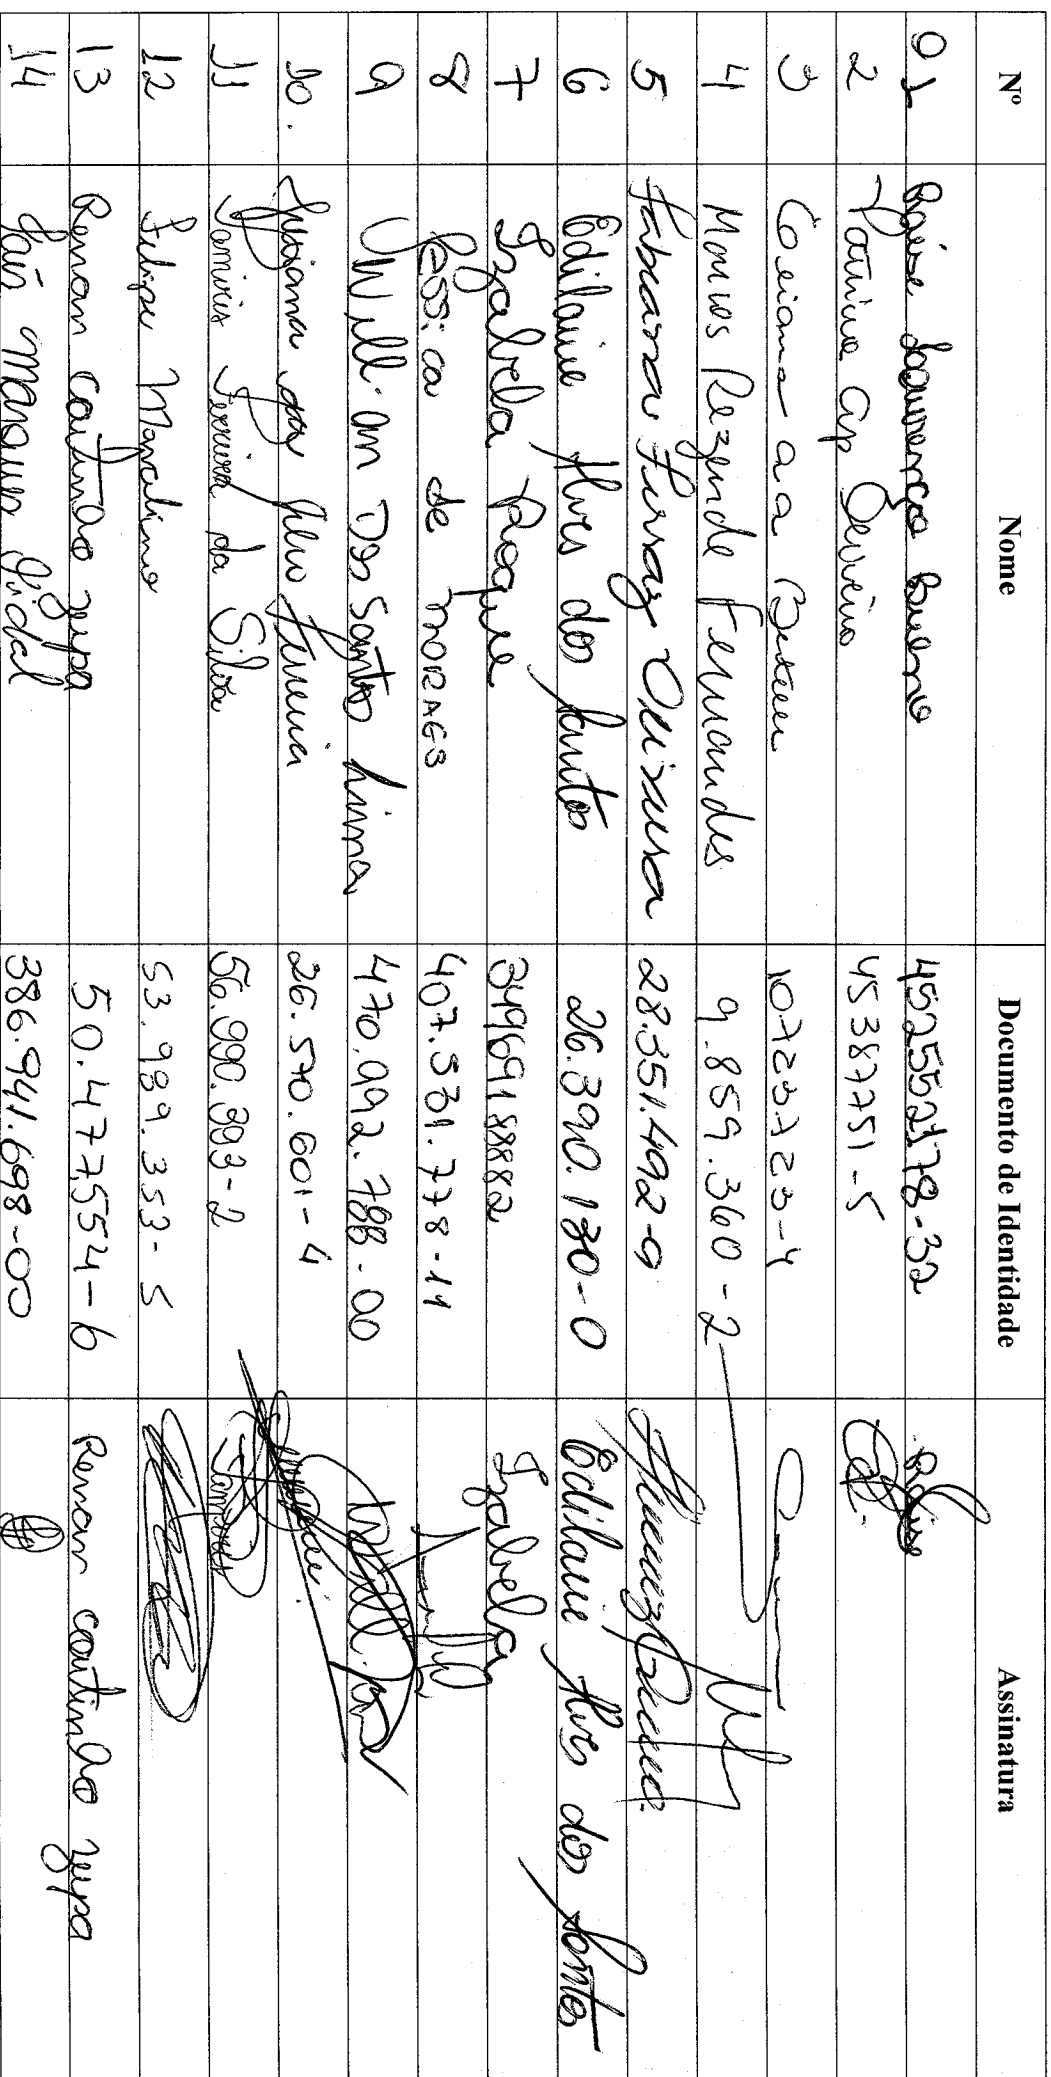 Nº Nome Documento de Identidade Assinatura
01 Lourenço Bueno 452552178-32
2 Patricia Ap Oliveira 45387751-5
3 a a
4 Marcos Rezende Fernandes 9.859.360-2
5 Fabiana Ferraz 28.351.492-9
6 Edilaine Alves dos Santos 26.390.130-0 Edilaine Alves dos Santos
7 Izabela Roque 34969188882 Izabela
8 Jessica de MORAES 407.531.778-11
9 Willian Dos Santos Lima 470.992.788-00
10. Ferreira 26.570.601-4
11 Tamiris Ferreira da Silva 56.990.393-2 Tamiris
12 Felipe Marcelino 53.989.353-5
13 Renan coutinho zupa 50.477554-6 Renan coutinho zupa
14 386.941.698-00